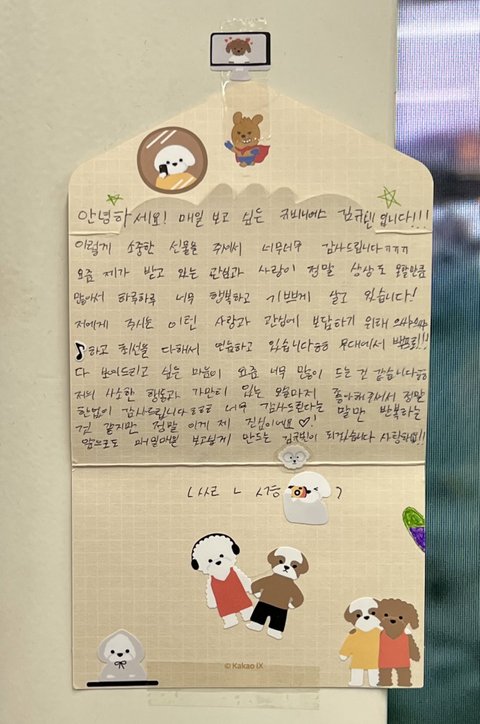 안녕하세요! 매일 보고 싶은 큐비니어스 김규빈입니다!!!
이렇게 소중한 선물을 주셔서 너무너무 감사드립니다ㅠㅠㅠ
요즘 제가 받고 있는 관심과 사랑이 정말 상상도 못할만큼
많아서 하루하루 너무 행복하고 기쁘게 살고 있습니다!
저에게 주시는 이런 사랑과 관심에 보답하기 위해
하고 최선을 다해서 연습하고 있습니다ㅎㅎ 무대에서
다 보여드리고 싶은 마음이 요즘 너무 많이 드는 것 같습니다ㅎㅎ
저의 사소한 행동과 가만히 있는 모습마저 좋아해주셔서 정말
한없이 감사드립니다ㅎㅎㅎ 너무 감사드린다는 말만 반복하는
것 같지만 정말 이게 제 진심이에요♡!
앞으로도 매일매일 보고싶게 만드는 김규빈이 되겠습니다 사랑해요!!!
© Kakao IX